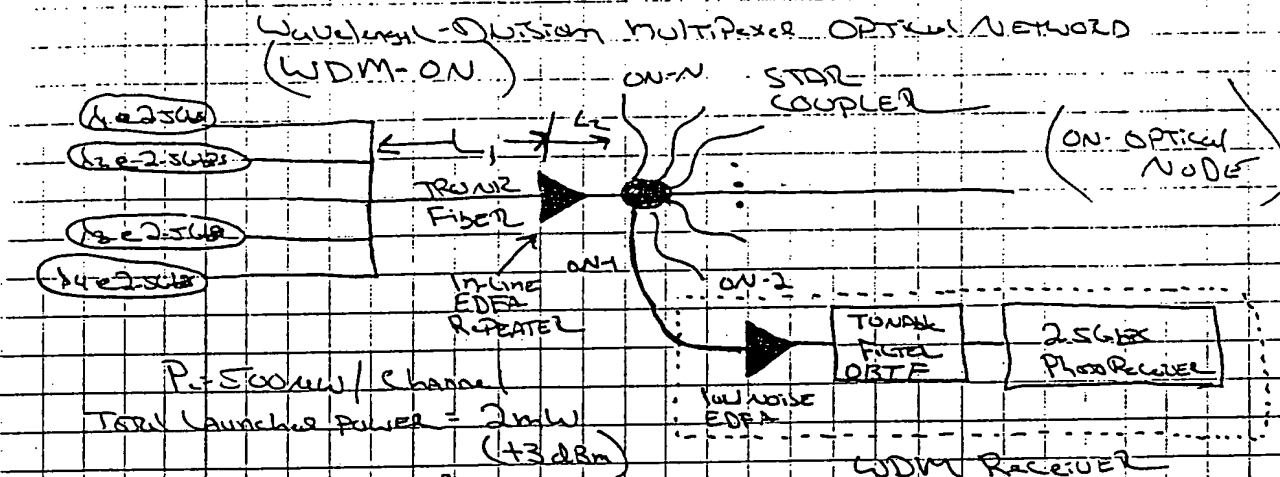 Wavelength-Division Multiplexer OPTical NETWORD
(WDM-ON)
ON-N
STAR
COUPLER
λ1 @ 2.5Gb/s
L1
L2
(ON-OPTical
NODE)
λ2 @ 2.5Gb/s
TRUNK
FIBER
λ3 @ 2.5Gb/s
λ4 @ 2.5Gb/s
IN-LINE
EDFA
REPEATER
ON-1
ON-2
TUNABLE
FILTER
OBTF
2.5Gb/s
PhotoReceiver
LOW NOISE
EDFA
= 500μW/Channel
Total Launched POWER = 2mW
(+3 dBm)
WDM ReceiVER